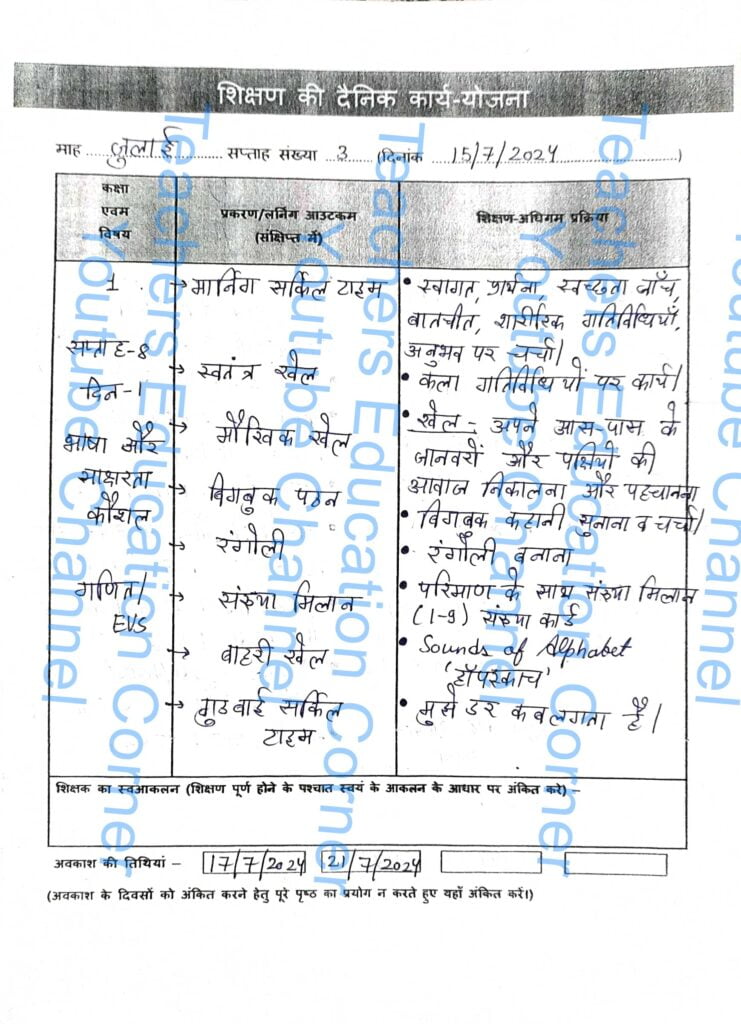 शिक्षण की दैनिक कार्य-योजना
माह जुलाई सप्ताह संख्या 3 (दिनांक 15/7/2024)
कक्षा एवम विषय
प्रकरण/लर्निंग आउटकम (संक्षिप्त में)
शिक्षण-अधिगम प्रक्रिया
1
सप्ताह-8
दिन-1
भाषा और
साक्षरता
कौशल
गणित/
EVS
→ मार्निंग सर्किल टाइम
→ स्वतंत्र खेल
→ मौखिक खेल
→ बिगबुक पठन
→ रंगोली
→ संख्या मिलान
→ बाहरी खेल
→ गुडबाई सर्किल
टाइम
• स्वागत, प्रार्थना, स्वच्छता जाँच,
बातचीत, शारीरिक गतिविधियाँ,
अनुभव पर चर्चा।
• कला गतिविधियों पर कार्य।
• खेल - अपने आस-पास के
जानवरों और पक्षियों की
आवाज निकालना और पहचानना
• बिगबुक कहानी सुनाना व चर्चा।
• रंगोली बनाना
• परिमाण के साथ संख्या मिलान
(1-9) संख्या कार्ड
• Sounds of Alphabet
'हॉपस्काच'
• मुझे डर कब लगता है।
शिक्षक का स्वआकलन (शिक्षण पूर्ण होने के पश्चात स्वयं के आकलन के आधार पर अंकित करे) –
अवकाश की तिथियां – 17/7/2024 21/7/2024
(अवकाश के दिवसों को अंकित करने हेतु पूरे पृष्ठ का प्रयोग न करते हुए यहाँ अंकित करें।)
Teachers Education Corner
Youtube Channel
Teachers Education Corner
Youtube Channel
Teachers Education Corner
Youtube Channel